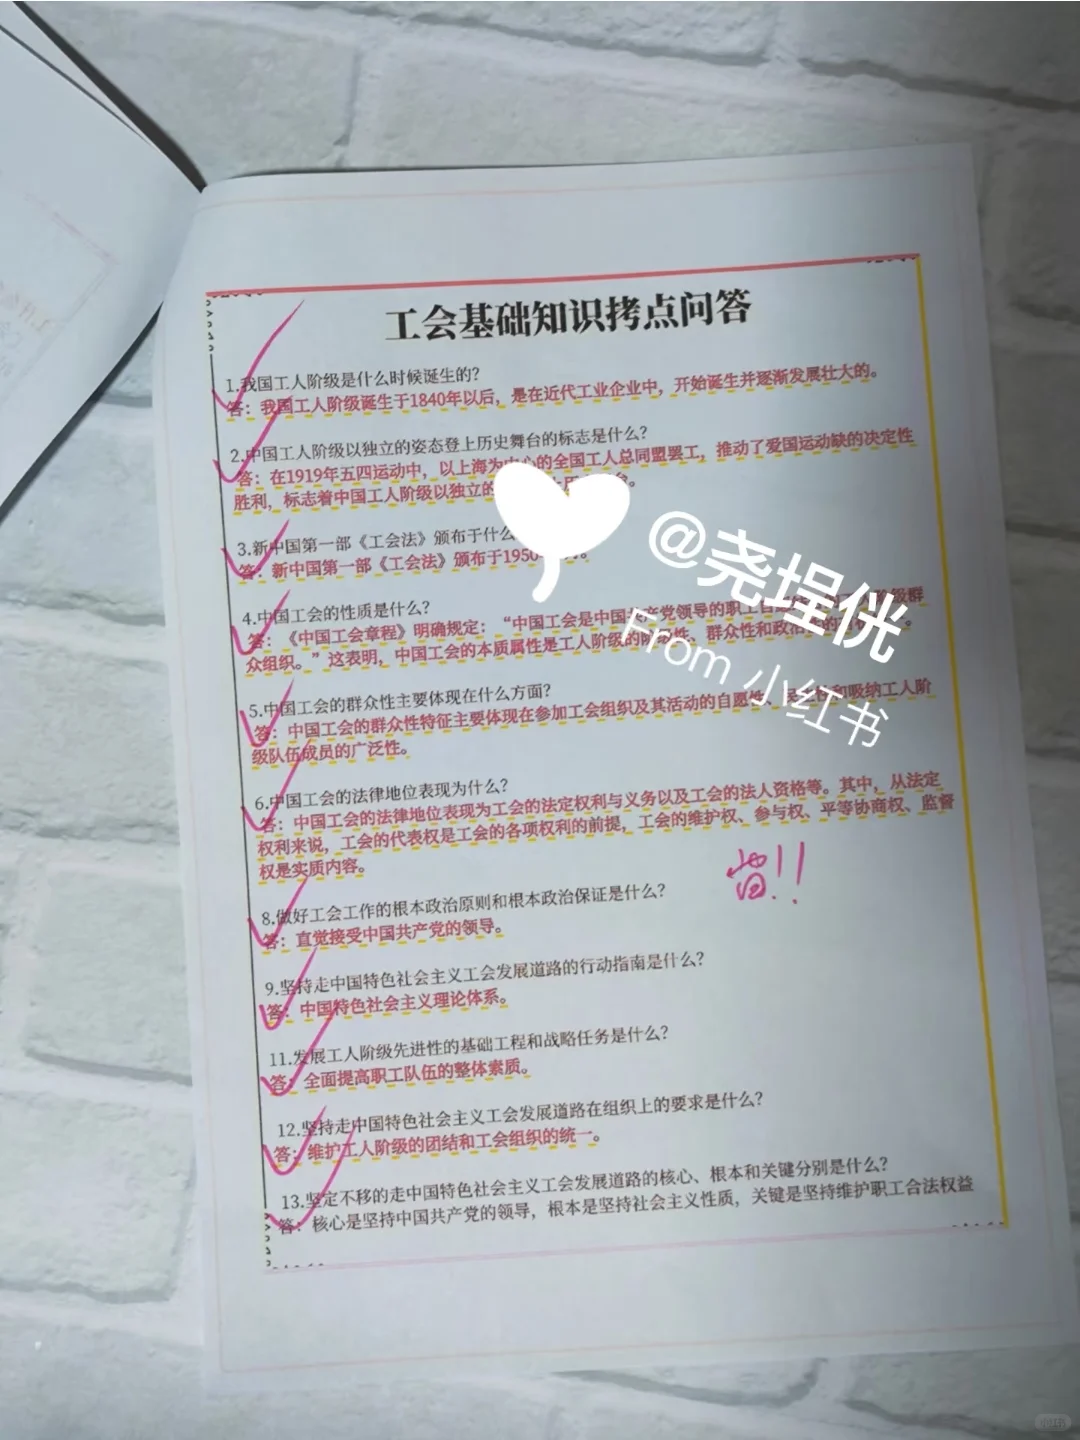 工会基础知识拷点问答
1.我国工人阶级是什么时候诞生的?
答：我国工人阶级诞生于1840年以后，是在近代工业企业中，开始诞生并逐渐发展壮大的。
2.中国工人阶级以独立的姿态登上历史舞台的标志是什么?
答：在1919年五四运动中，以上海为中心的全国工人总同盟罢工，推动了爱国运动缺的决定性
胜利，标志着中国工人阶级以独立的
3.新中国第一部《工会法》颁布于什么
答：新中国第一部《工会法》颁布于1950
4.中国工会的性质是什么?
答：《中国工会章程》明确规定：“中国工会是中国共产党领导的职工自 阶级群
众组织。”这表明，中国工会的本质属性是工人阶级的 性、群众性和政治
5.中国工会的群众性主要体现在什么方面?
答：中国工会的群众性特征主要体现在参加工会组织及其活动的自愿性、 和吸纳工人阶
级队伍成员的广泛性。
6.中国工会的法律地位表现为什么?
答：中国工会的法律地位表现为工会的法定权利与义务以及工会的法人资格等。其中，从法定
权利来说，工会的代表权是工会的各项权利的前提，工会的维护权、参与权、平等协商权、监督
权是实质内容。
背!!
8.做好工会工作的根本政治原则和根本政治保证是什么?
答：直觉接受中国共产党的领导。
9.坚持走中国特色社会主义工会发展道路的行动指南是什么?
答：中国特色社会主义理论体系。
11.发展工人阶级先进性的基础工程和战略任务是什么?
答：全面提高职工队伍的整体素质。
12.坚持走中国特色社会主义工会发展道路在组织上的要求是什么?
答：维护工人阶级的团结和工会组织的统一。
13.坚定不移的走中国特色社会主义工会发展道路的核心、根本和关键分别是什么?
答：核心是坚持中国共产党的领导，根本是坚持社会主义性质，关键是坚持维护职工合法权益
@尧埕侊
From 小红书
小红书